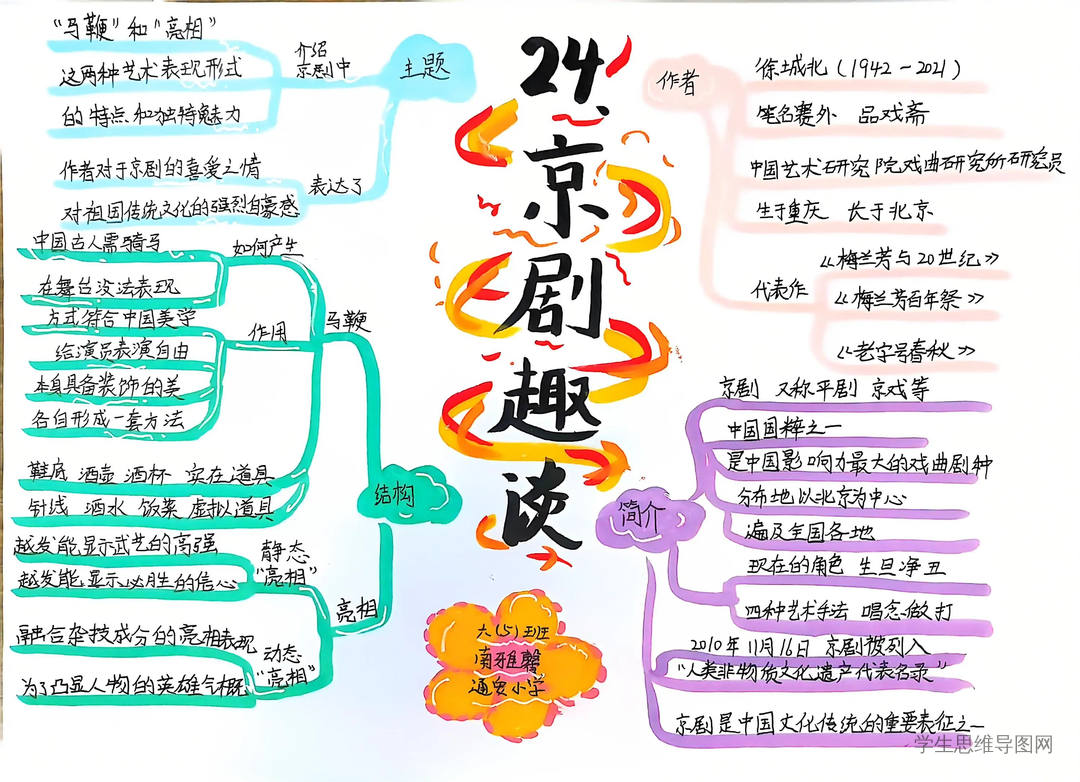 24.京剧趣谈
主题
介绍
京剧中
"马鞭"和"亮相"
这两种艺术表现形式
的特点和独特魅力
表达了
作者对于京剧的喜爱之情
对祖国传统文化的强烈自豪感
作者
徐城北(1942-2021)
笔名塞外 品戏斋
中国艺术研究院戏曲研究所研究员
生于重庆 长于北京
代表作
《梅兰芳与20世纪》
《梅兰芳百年祭》
《老字号春秋》
结构
马鞭
如何产生
中国古人需骑马
在舞台没法表现
作用
方式符合中国美学
给演员表演自由
本身具备装饰的美
各自形成一套方法
鞋底 酒壶 酒杯 实在道具
针线 酒水 饭菜 虚拟道具
亮相
静态
"亮相"
越发能显示武艺的高强
越发能显示必胜的信心
动态
"亮相"
融合杂技成分的亮相表现
为了凸显人物的英雄气概
简介
京剧 又称平剧 京戏等
中国国粹之一
是中国影响力最大的戏曲剧种
分布地以北京为中心
遍及全国各地
现在的角色 生旦净丑
四种艺术手法 唱念做打
2010年11月16日 京剧被列入
"人类非物质文化遗产代表名录"
京剧是中国文化传统的重要表征之一
六(5)班
南雅馨
通安小学
学生思维导图网